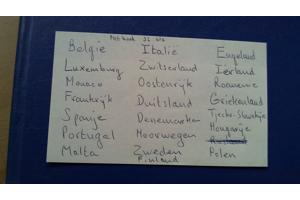 België
Luxemburg
Monaco
Frankrijk
Spanje
Portugal
Malta
Italië
Zwitserland
Oostenrijk
Duitsland
Denemarken
Noorwegen
Zweden
Finland
Engeland
Ierland
Roemenië
Griekenland
Tjecho-Slowakije
Hongarije
Polen